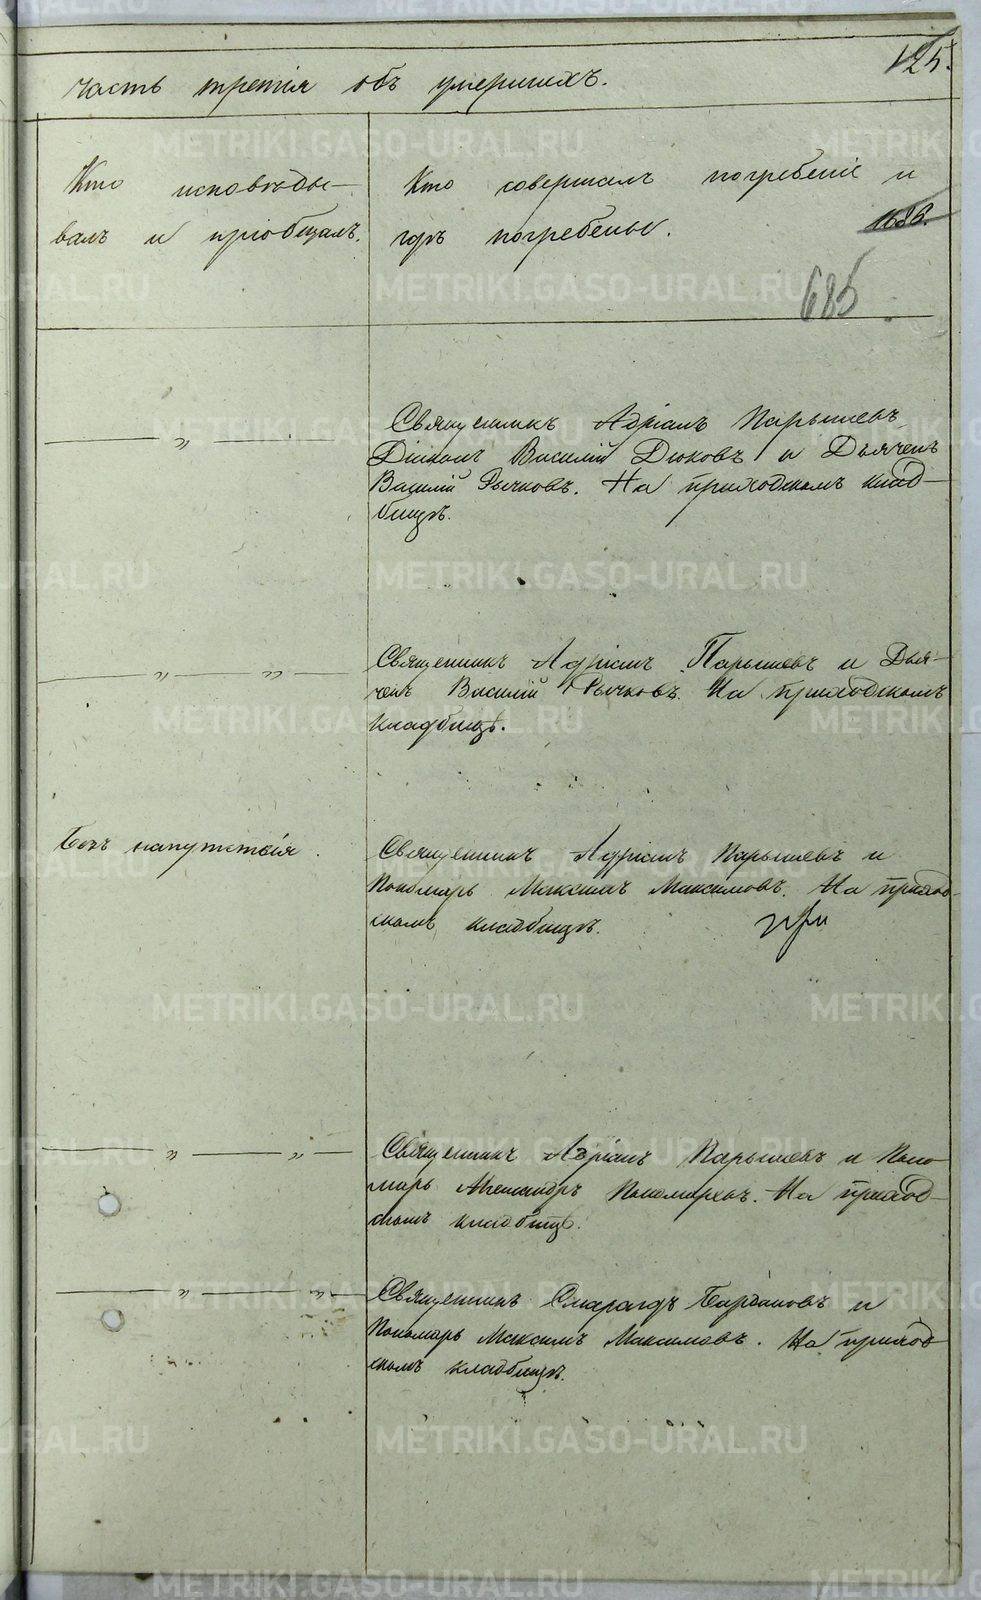 125.
часть третія объ умершихъ.
Кто исповѣды-
валъ и пріобщалъ.
Кто совершалъ погребеніе и
гдѣ погребены.
685
— „ —
Священникъ Адріанъ Парышевъ,
Діаконъ Василій Дюковъ и Дьячекъ
Василій Рычковъ. На приходскомъ клад-
бищѣ.
— „ — „ —
Священникъ Адріанъ Парышевъ и Дья-
чекъ Василій Рычковъ. На приходскомъ
кладбищѣ.
Безъ напутствія.
Священникъ Адріанъ Парышевъ и
Пономарь Максимъ Максимовъ. На приход-
скомъ кладбищѣ.
— „ — „ —
Священникъ Адріанъ Парышевъ и Поно-
марь Александръ Пономаревъ. На приход-
скомъ кладбищѣ.
— „ — „ —
Священникъ Смарагдъ и
Пономарь Максимъ Максимовъ. На приход-
скомъ кладбищѣ.
METRIKI.GASO-URAL.RU